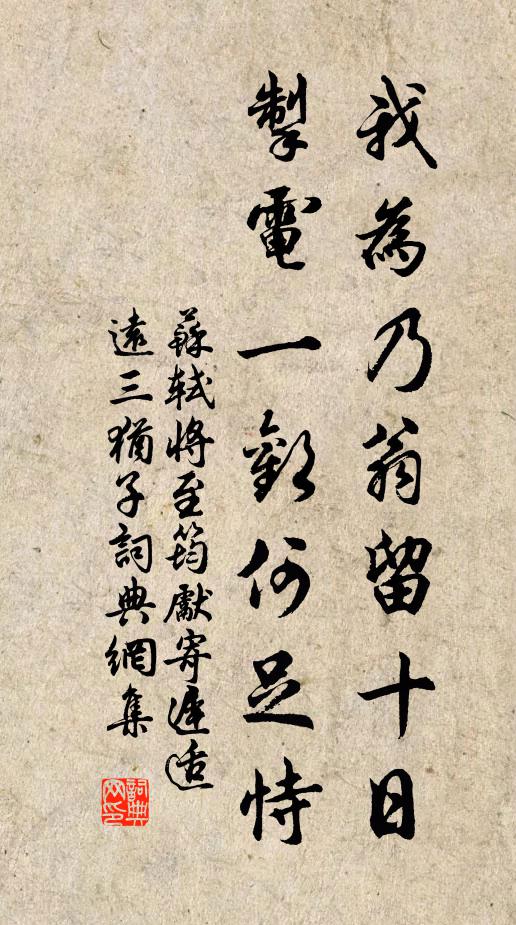 我為乃翁留十日
掣電一歡何足恃
蘇軾將至筠獻寄遲适
遠三猶子詞典網集
詞典
网印